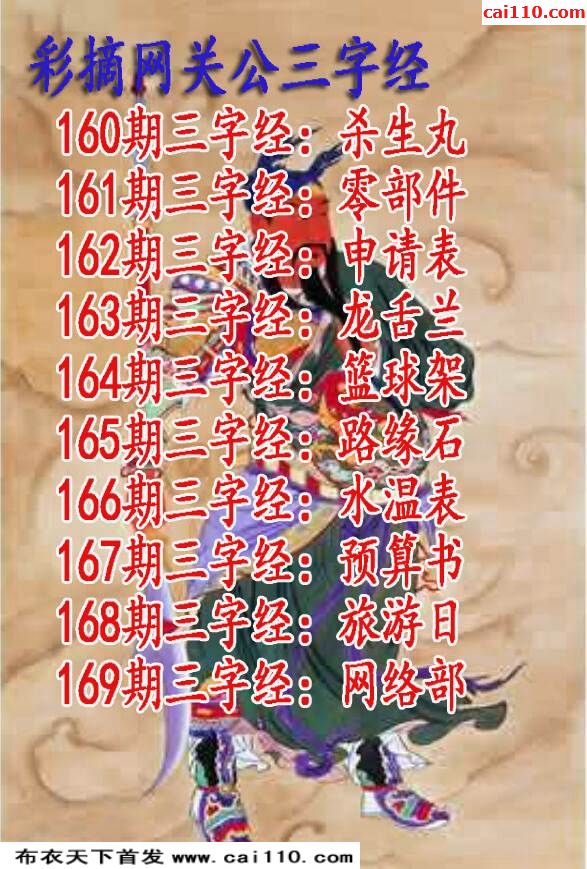 cai110.com
彩摘网关公三字经
160期三字经：杀生丸
161期三字经：零部件
162期三字经：申请表
163期三字经：龙舌兰
164期三字经：篮球架
165期三字经：路缘石
166期三字经：水温表
167期三字经：预算书
168期三字经：旅游日
169期三字经：网络部
布衣天下首发 www.cai110.com